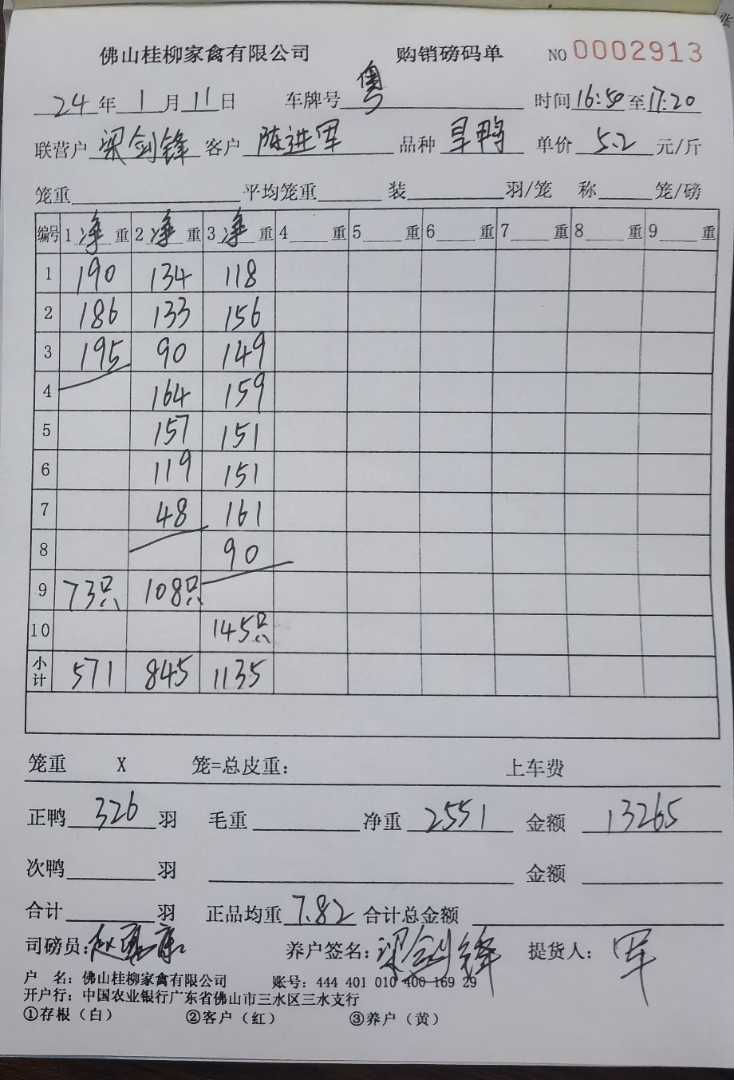 佛山桂柳家禽有限公司 购销磅码单 NO 0002913
24年1月11日 车牌号 粤 时间16:50至17:20
联营户 梁剑锋 客户 陈进军 品种 旱鸭 单价 5.2 元/斤
笼重 平均笼重 装 羽/笼 称 笼/磅
编号 1 净 重 2 净 重 3 净 重 4 重 5 重 6 重 7 重 8 重 9 重
1 190 134 118
2 186 133 156
3 195 90 149
4 164 159
5 157 151
6 119 151
7 48 161
8 90
9 73只 108只
10 145只
小计 571 845 1135
笼重 X 笼=总皮重: 上车费
正鸭 326 羽 毛重 净重 2551 金额 13265
次鸭 羽 金额
合计 羽 正品均重 7.82 合计总金额
司磅员: 养户签名: 梁剑锋 提货人: 军
户 名: 佛山桂柳家禽有限公司 账号: 444 401 010 400 169 29
开户行: 中国农业银行广东省佛山市三水区三水支行
①存根（白） ②客户（红） ③养户（黄）